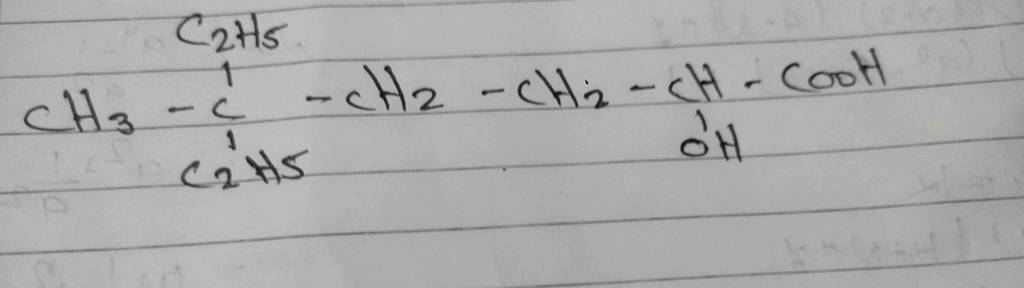 C2H5
CH3 - C - CH2 - CH2 - CH - COOH
C2H5 OH